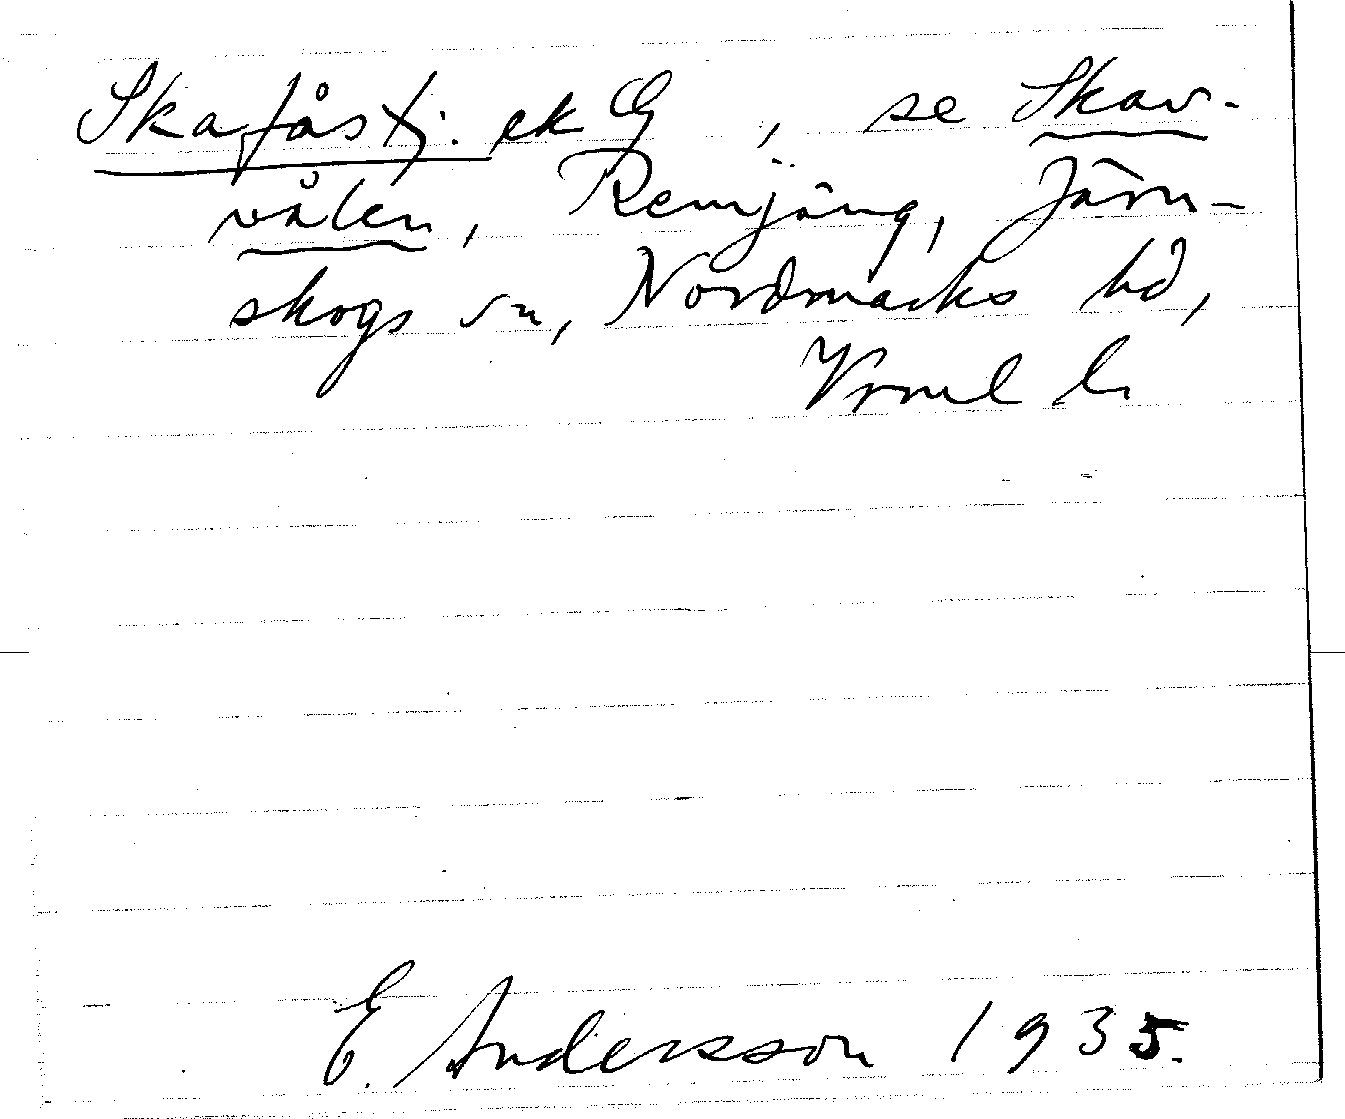 Skafåstj. ek G, se Skav-
vålen, Remjäng, Järn-
skogs sn, Nordmarks hd,
Vrml l.
E. Andersson 1935.